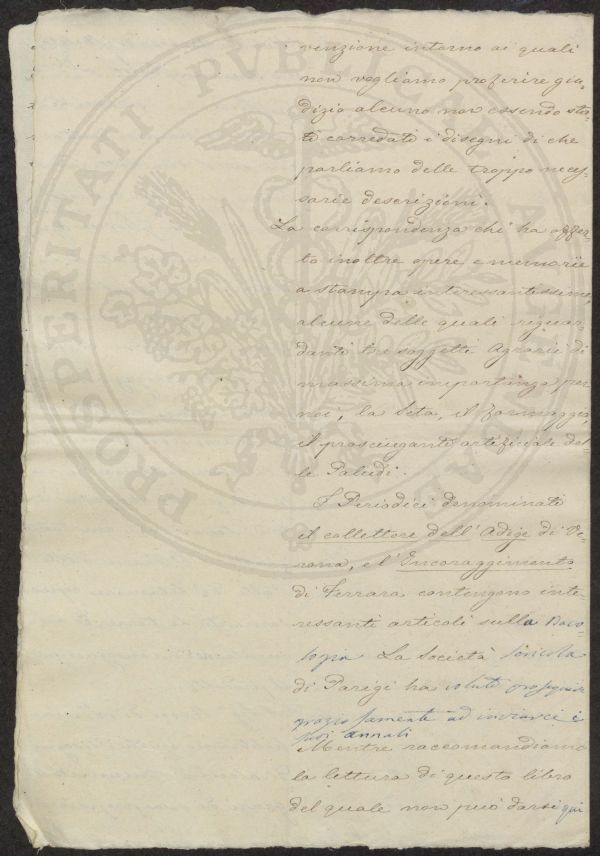 venzione intorno ai quali
non vogliamo proferire giu-
dizio alcuno non essendo sta-
ti corredati i disegni di che
parliamo delle troppo neces-
sarie descrizioni.
La corrispondenza chi ha offer-
to inoltre opere e memorie
a stampa interessantissime,
alcune delle quali riguar-
danti tre soggetti Agrarii di
massima importanza per
noi, la Seta, il formaggio,
il prosciugante artificiale del-
le Paludi.
I Periodici denominati
il collettore dell'Adige di Ve-
rona, e l'Incoraggimento
di Ferrara contengono inte-
ressanti articoli sulla Baco-
logia La Società Sericola
di Parigi ha voluto proseguire
graziosamente ad inviarci i
suoi annali
Mentre raccomandiamo
la lettura di questo libro
del quale non può darsi qui
PROSPERITATI PVBLICAE AVGENDAE